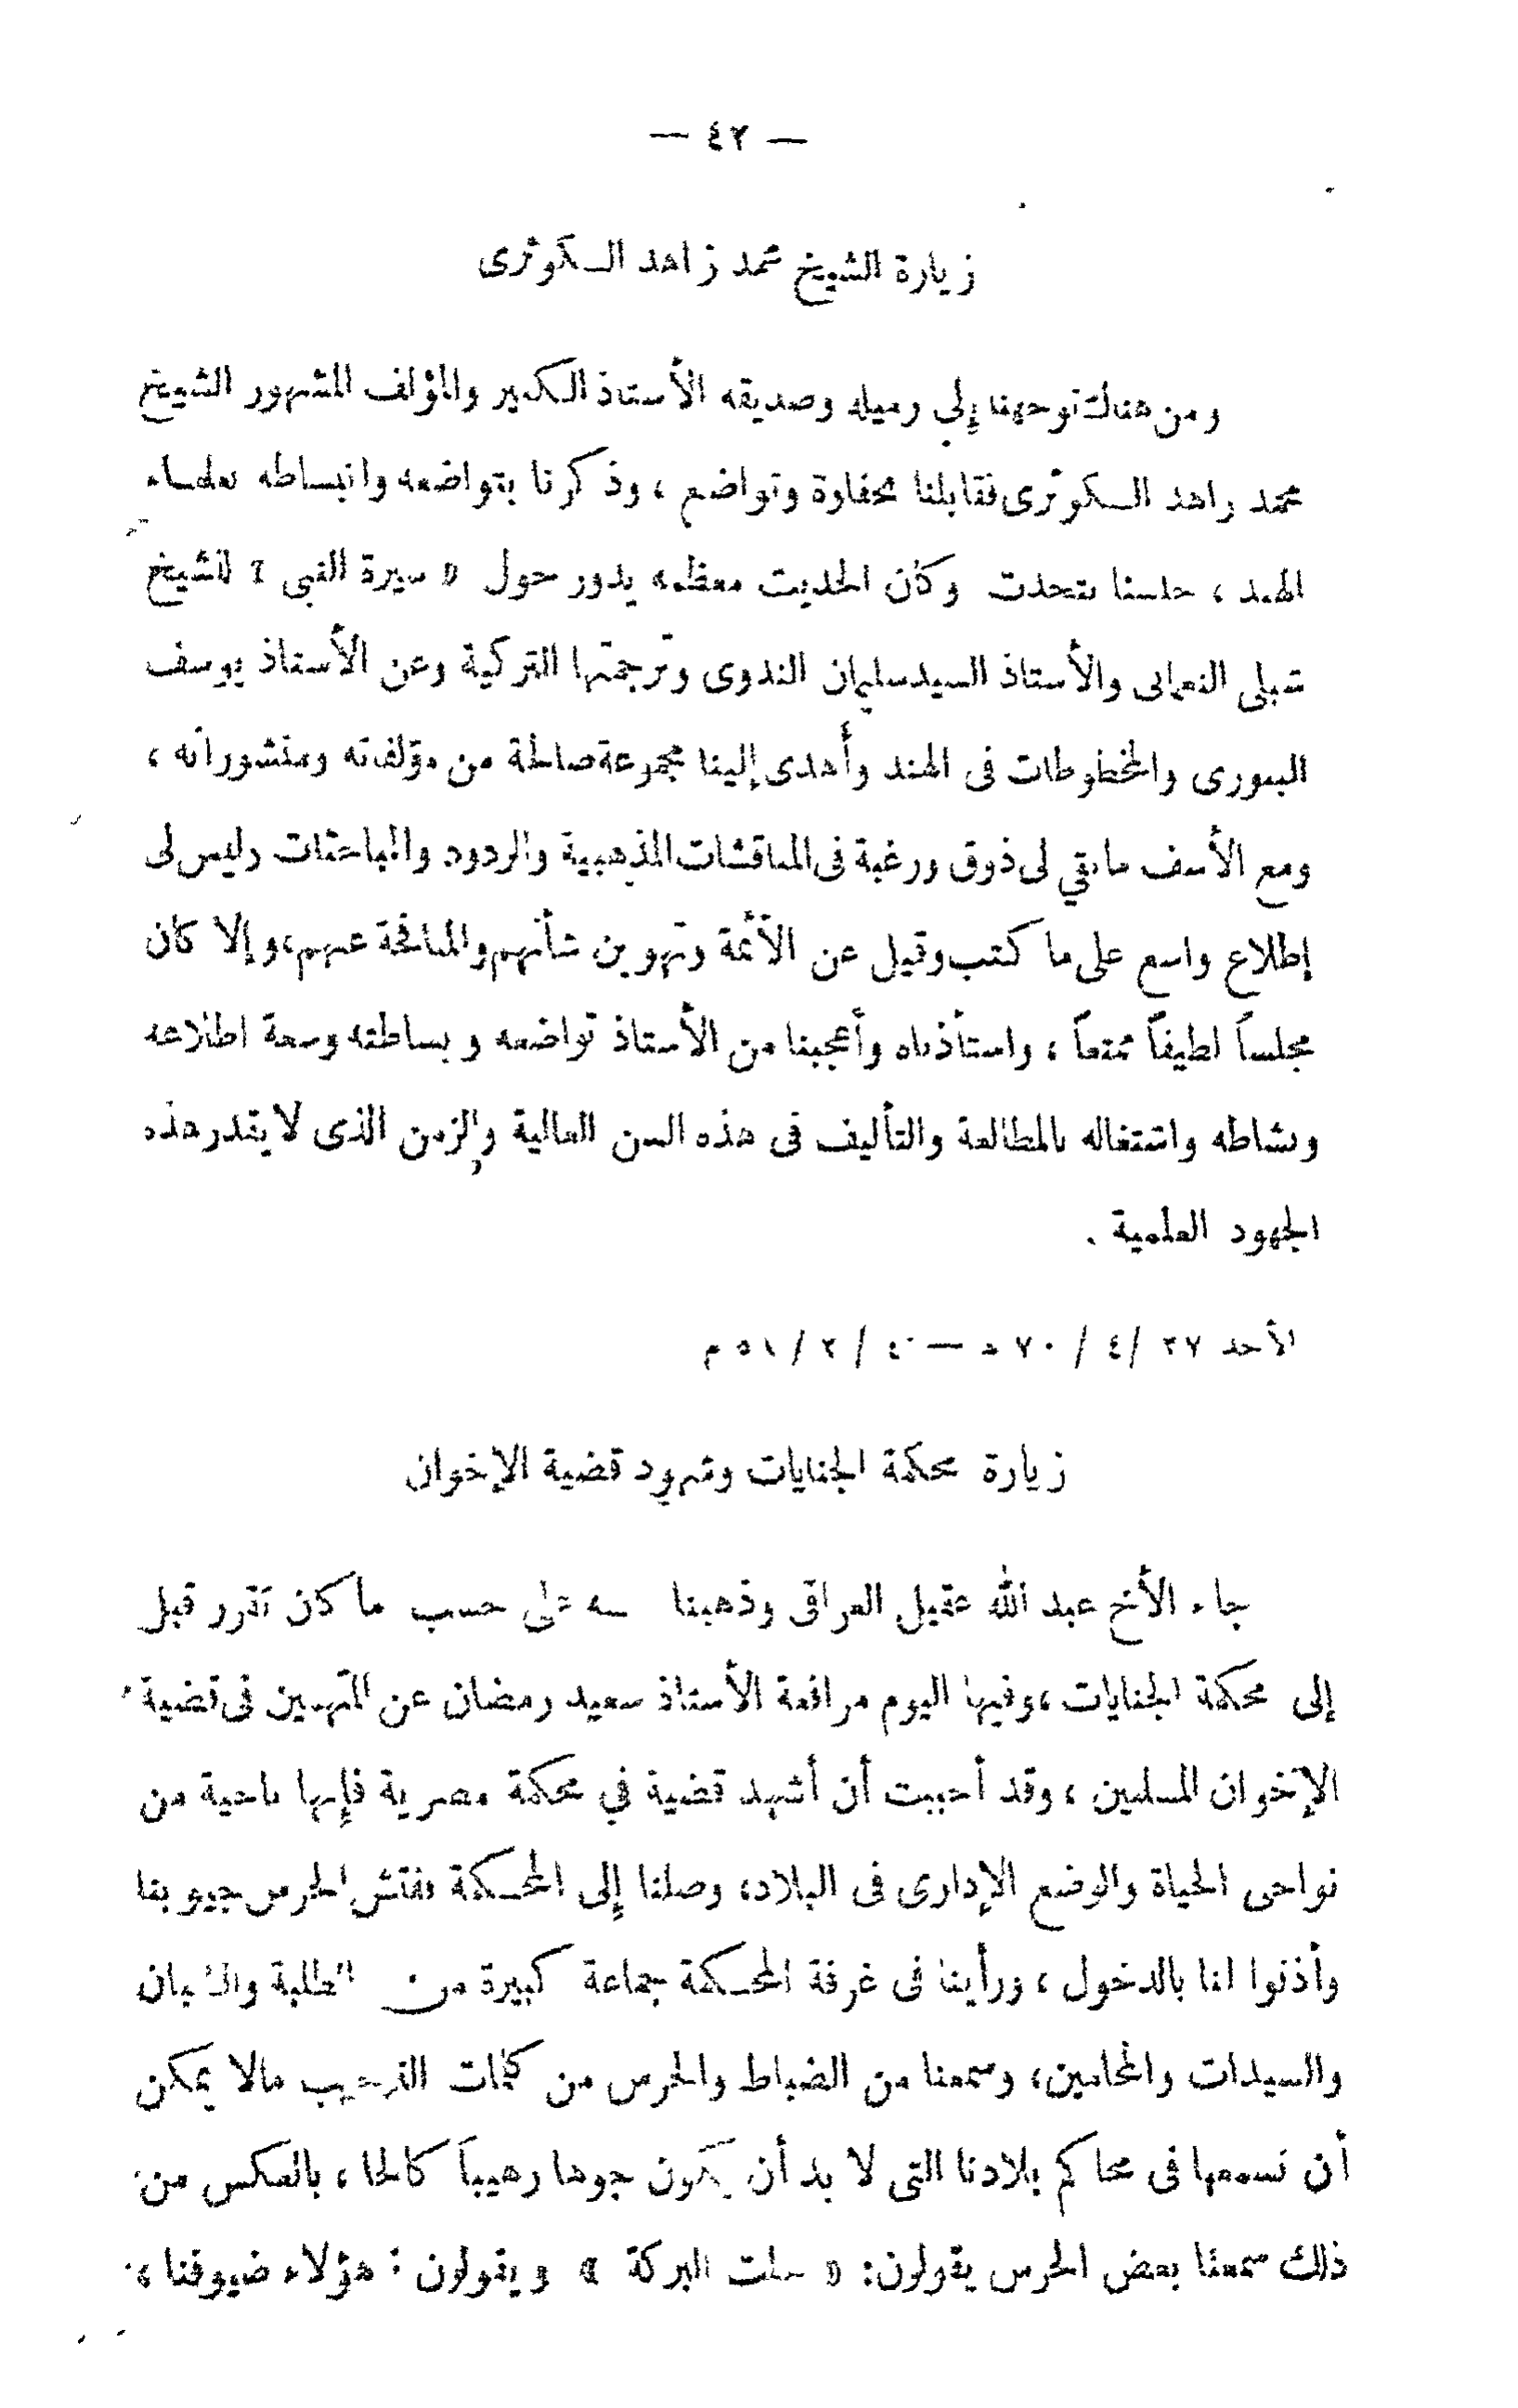 — ٤٢ —
زيارة الشيخ محمد زاهد الكوثرى
ومن هناك توجهنا إلى زميله وصديقه الأستاذ الكبير والمؤلف المشهور الشيخ
محمد زاهد الكوثرى فقابلنا بحفاوة وتواضع ، وذكرنا بتواضعه وانبساطه بعلماء
الهند ، جلسنا نتحدث وكان الحديث معظمه يدور حول « سيرة النبى » للشيخ
شبلى النعمانى والأستاذ السيد سليمان الندوى وترجمتها التركية وعن الأستاذ يوسف
البنورى والمخطوطات فى الهند وأهدى إلينا مجموعة صالحة من مؤلفاته ومنشوراته ،
ومع الأسف ما بقي لى ذوق ورغبة فى المناقشات المذهبية والردود والمباحثات وليس لى
إطلاع واسع على ما كتب وقيل عن الأئمة وتهوين شأنهم والمنافحة عنهم، وإلا كان
مجلساً لطيفاً ممتعاً ، واستأذناه وأعجبنا من الأستاذ تواضعه وبساطته وسعة اطلاعه
ونشاطه واشتغاله بالمطالعة والتأليف فى هذه السن العالية والزمن الذى لا يقدر هذه
الجهود العلمية .
الأحد ٢٧ / ٤ / ٧٠ ه — ٤ / ٢ / ٥١ م
زيارة محكمة الجنايات وشهود قضية الإخوان
جاء الأخ عبد الله عقيل العراقى وذهبنا معه على حسب ما كان تقرر قبل
إلى محكمة الجنايات ، وفيها اليوم مرافعة الأستاذ سعيد رمضان عن المتهمين فى قضية
الإخوان المسلمين ، وقد أحببت أن أشهد قضية في محكمة مصرية فإنها ناحية من
نواحى الحياة والوضع الإدارى فى البلاد، وصلنا إلى المحكمة ففتش الحرس جيوبنا
وأذنوا لنا بالدخول ، ورأينا فى غرفة المحكمة جماعة كبيرة من الطلبة والشبان
والسيدات والمحامين، وسمعنا من الضباط والحرس من كلمات الترحيب مالا يمكن
أن نسمعها فى محاكم بلادنا التى لا بد أن يكون جوها رهيباً كالحا ، بالعكس من
ذلك سمعنا بعض الحرس يقولون: « حلت البركة » ويقولون : هؤلاء ضيوفنا ،